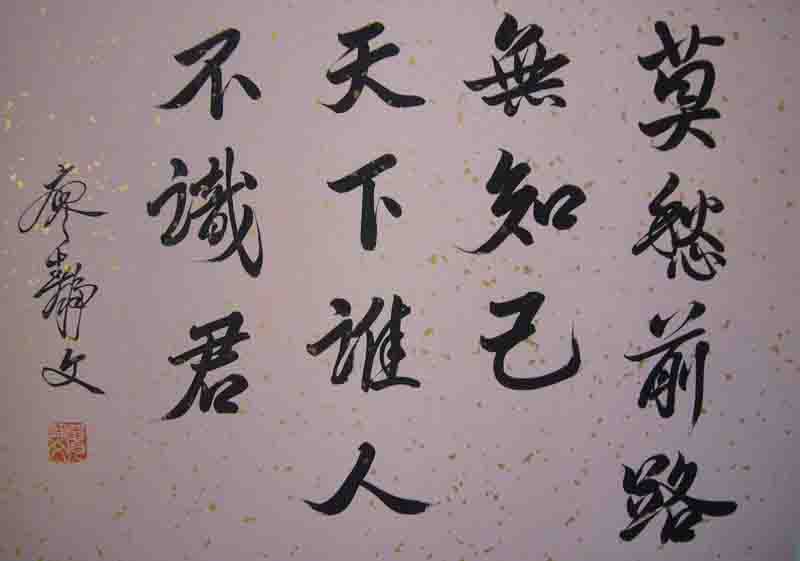 莫愁前路
無知己
天下誰人
不識君
廖靜文